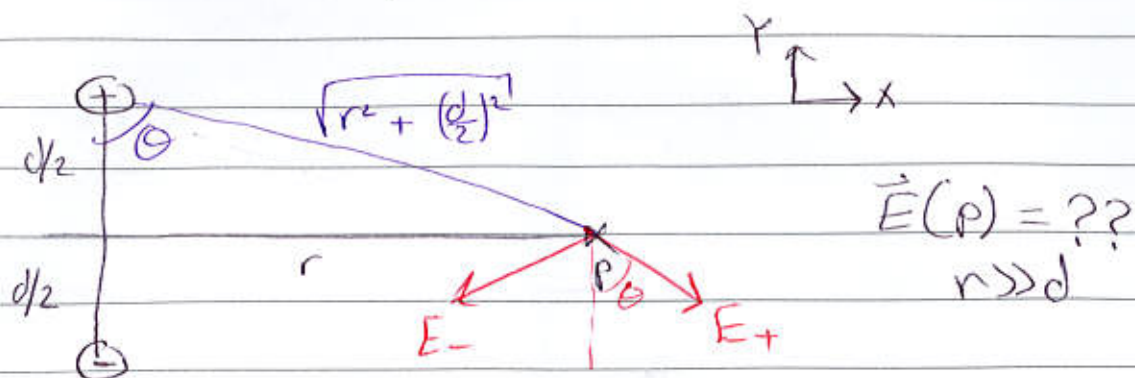 Y
X
+
θ
√(r² + (d/2)²)
d/2
r
d/2
P
θ
E₋
E₊
-
E⃗(p) = ??
r>>d